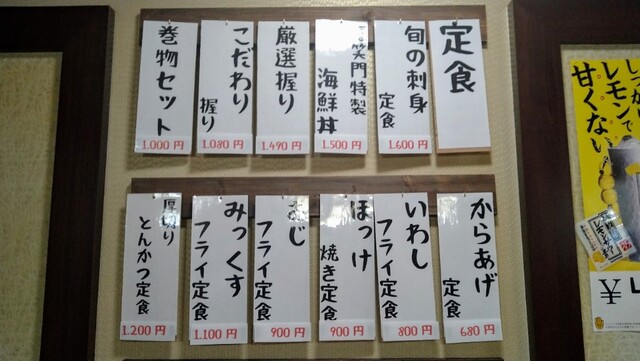 定食
旬の刺身
定食
1.600円
笑門特製
海鮮丼
1.500円
厳選握り
1.490円
こだわり
握り
1.080円
巻物セット
1.000円
からあげ
定食
680円
いわし
フライ定食
800円
ほっけ
焼き定食
900円
あじ
フライ定食
900円
みっくす
フライ定食
1.100円
厚切り
とんかつ定食
1.200円
レモンで
甘くない